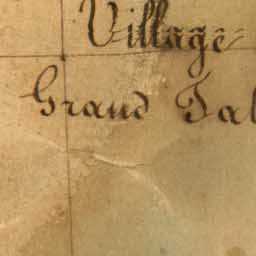 Village
Grand Fal